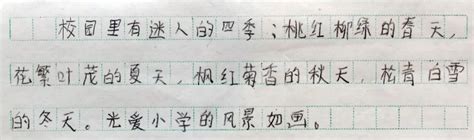 校园里有迷人的四季；桃红柳绿的春天，
花繁叶茂的夏天，枫红菊香的秋天，松青白雪
的冬天。光爱小学的风景如画。